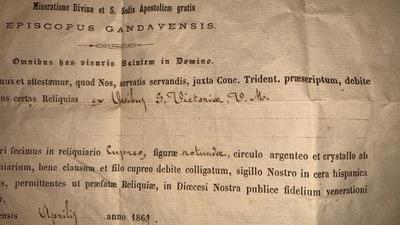 Miseratione Divina et S. Sedis Apostolicæ gratia
EPISCOPUS GANDAVENSIS.
Omnibus has visuris Salutem in Domino.
mus et attestamur, quod Nos, servatis servandis, juxta Conc. Trident. præscriptum, debite
us certas Reliquias ex Ossibus S. Victoriæ, V. M.
ri fecimus in reliquiario Cupreo, figuræ rotundæ, circulo argenteo et crystallo ab
uiarium, bene clausum et filo cupreo debite colligatum, sigillo Nostro in cera hispanica
s, permittentes ut præfatæ Reliquiæ, in Diœcesi Nostra publice fidelium venerationi
r.
ensis Aprilis anno 1861